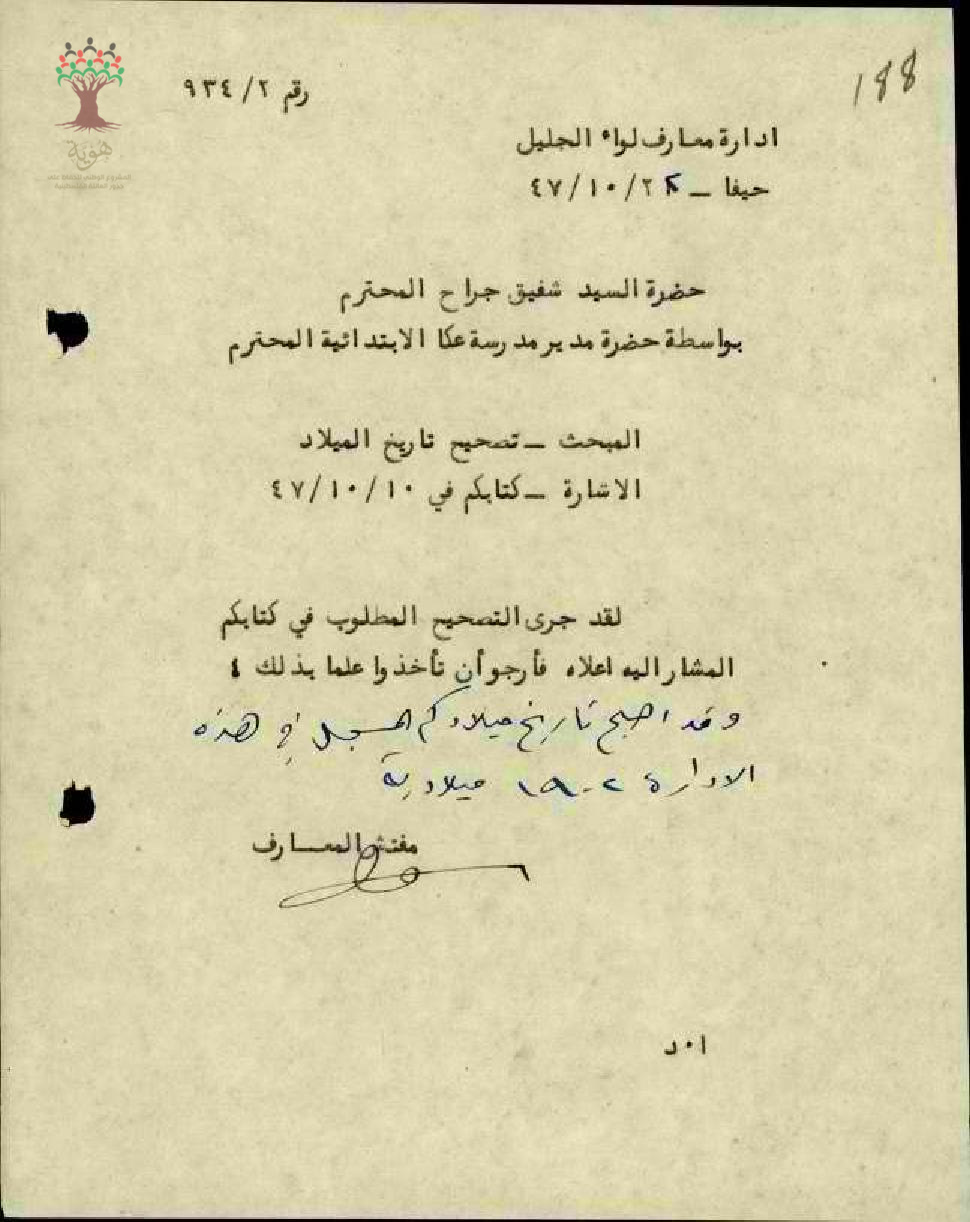 188
رقم ٩٣٤/٢
هوية
ادارة معارف لواء الجليل
حيفا – ٤٧/١٠/٢٨
حضرة السيد شفيق جراح المحترم
بواسطة حضرة مدير مدرسة عكا الابتدائية المحترم
المبحث – تصحيح تاريخ الميلاد
الاشارة – كتابكم في ٤٧/١٠/١٠
لقد جرى التصحيح المطلوب في كتابكم
المشار اليه اعلاه فأرجو أن تأخذوا علما بذلك ٤
وقد اصبح تاريخ ميلادكم المسجل في هذه
الادارة ١٩٠٢ ميلادية
مفتش المعارف
ا٠د